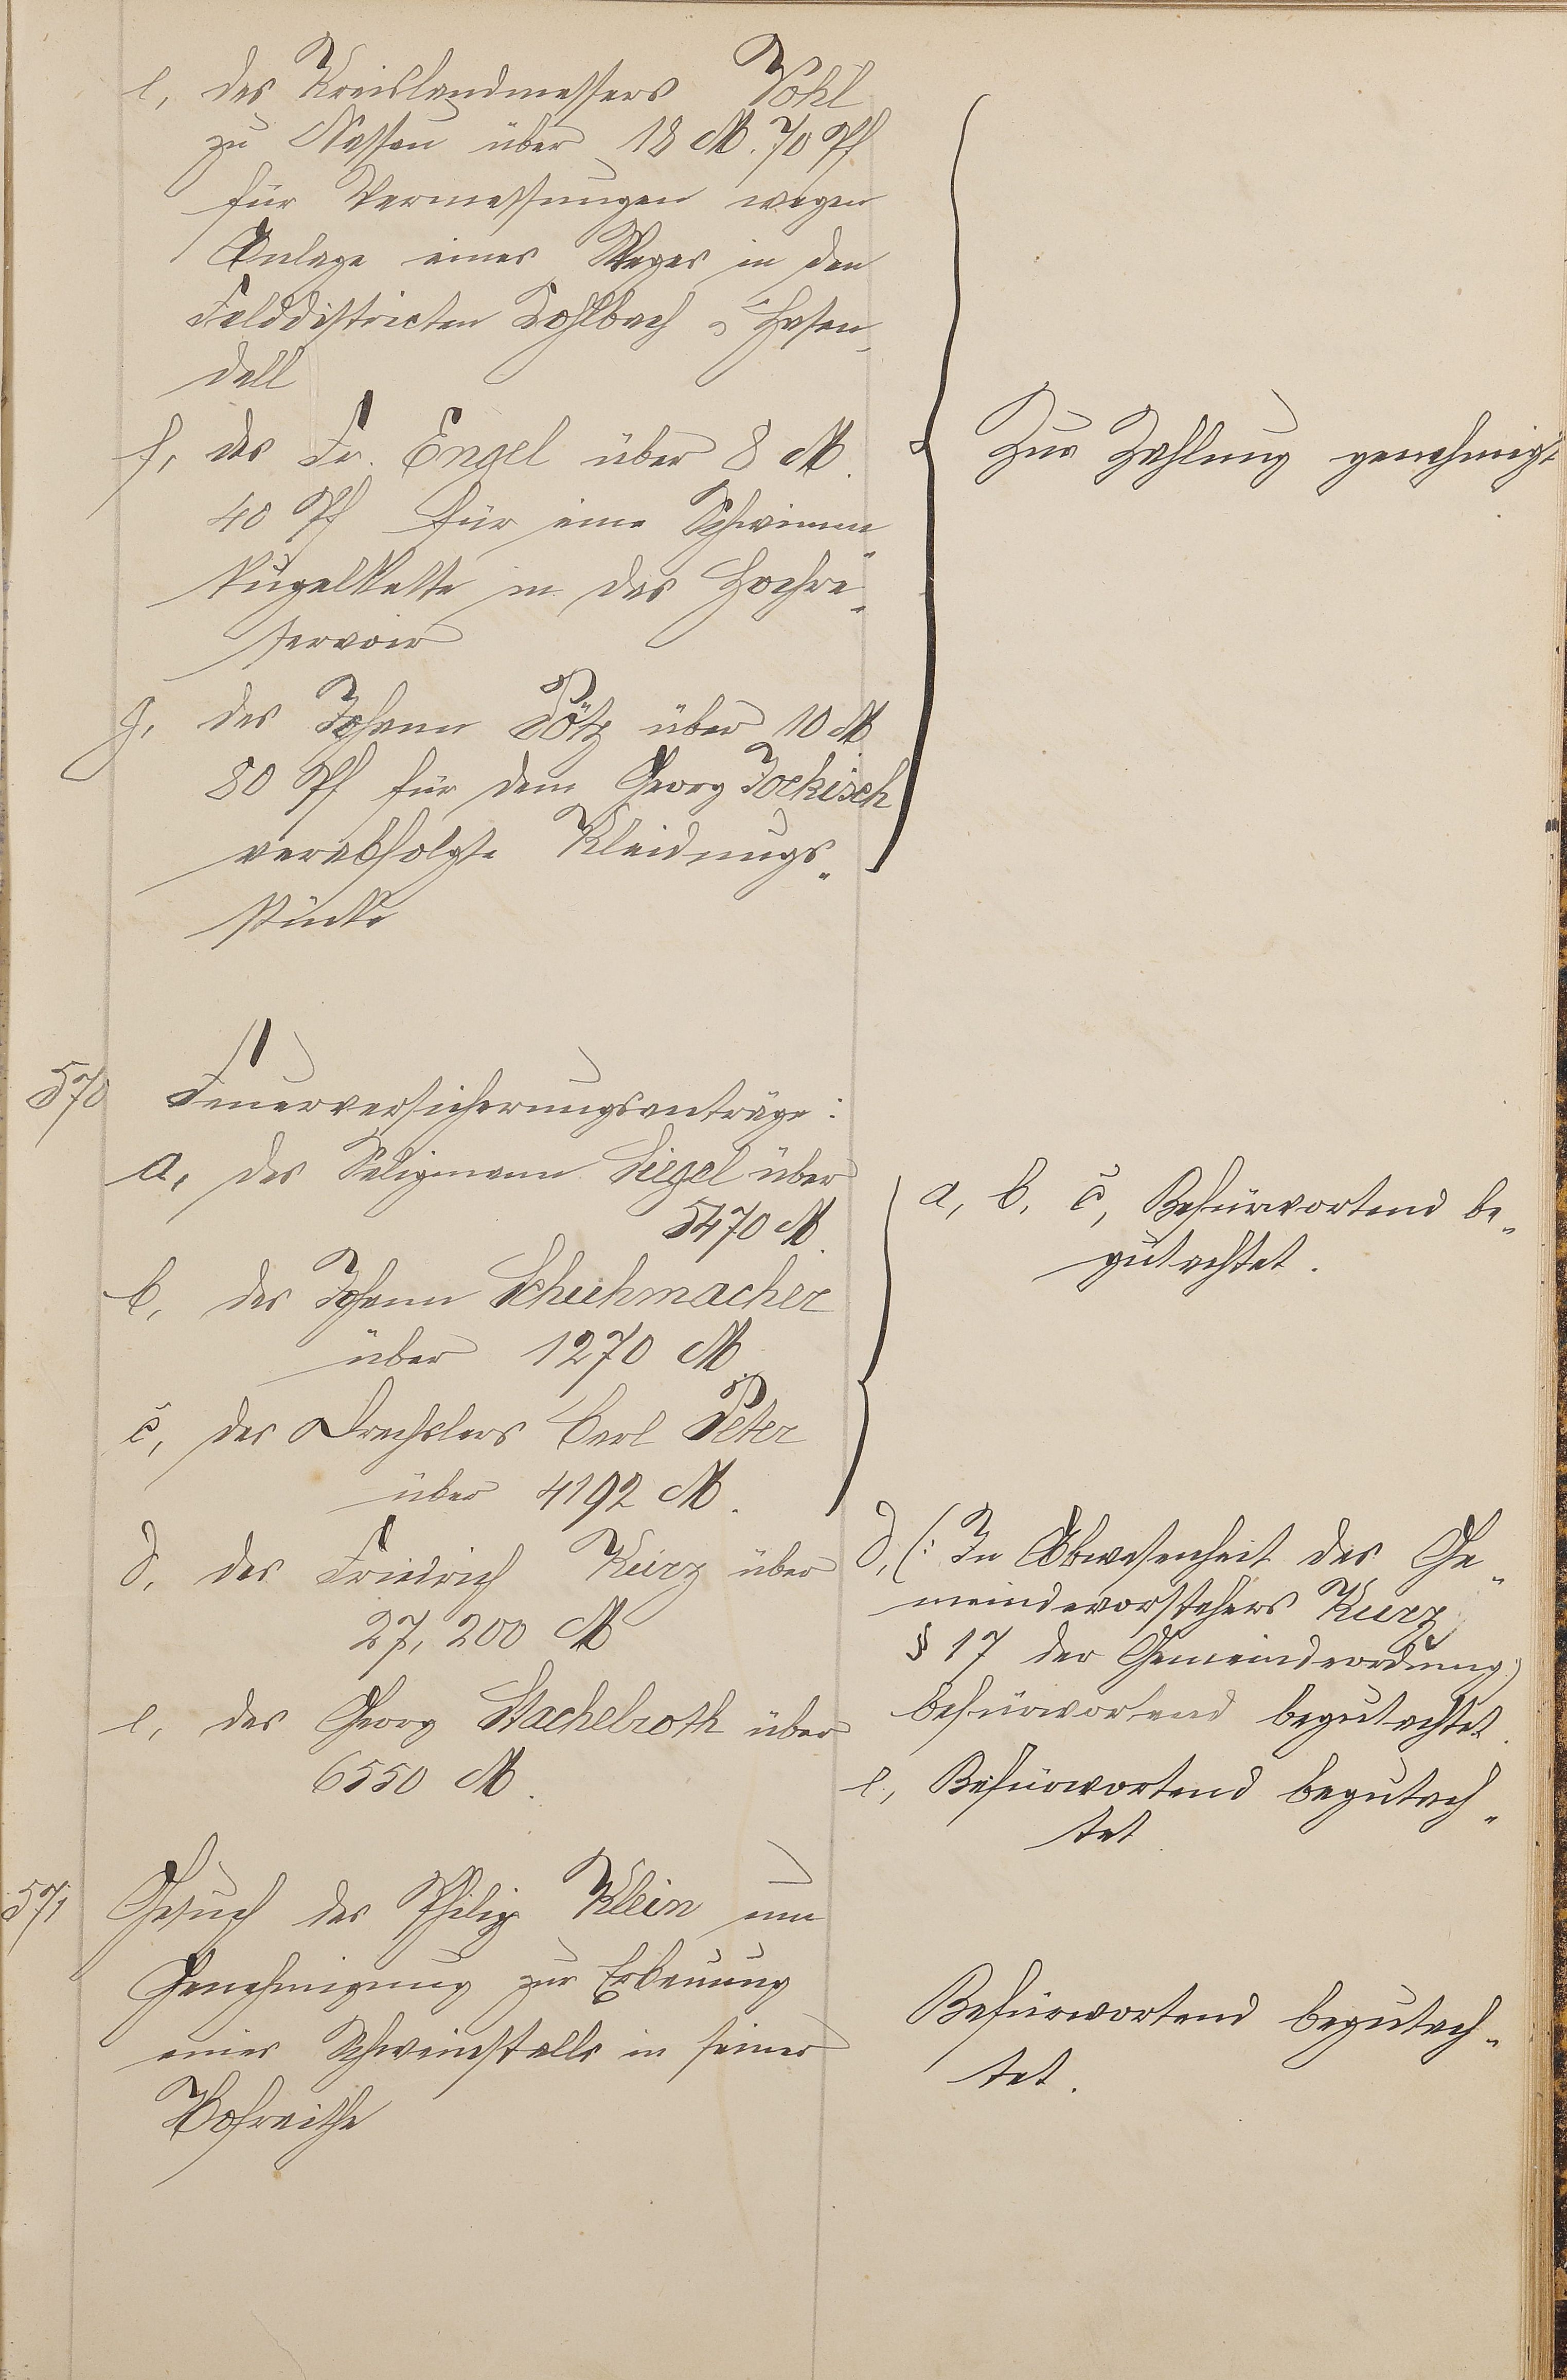 e, des Kreislandmessers Vohl
zu Nassau über 18 M. 70 Pf
für Vermessungen wegen
Anlage eines Weges in den
Felddistricten Kohlbach u Hasen-
dell
f, des Fr. Engel über 8 M.
40 Pf für eine Schwimm-
kugelkette in das Hochre-
servoir
g, des Johann Pötz über 10 M
80 Pf für dem Georg Jockisch
verabfolgte Kleidungs-
stücke
Zur Zahlung genehmigt
570 Feuerversicherungsanträge:
a, des Seligmann Siegel über
5470 M.
b, des Johann Schuhmacher
über 1270 M.
c, des Drechslers Carl Peter
über 4192 M.
d, des Friedrich Kurz über
27,200 M
e, des Georg Stachelroth über
6550 M.
a, b, c, Befürwortend be-
gutachtet.
d, (: In Abwesenheit des Ge-
meindevorstehers Kurz
§ 17 der Gemeindeordnung:)
befürwortend begutachtet.
e, Befürwortend begutach-
tet
571 Gesuch des Philip Klein um
Genehmigung zur Erbauung
eines Schweinestalls in seiner
Hofreithe
Befürwortend begutach-
tet.